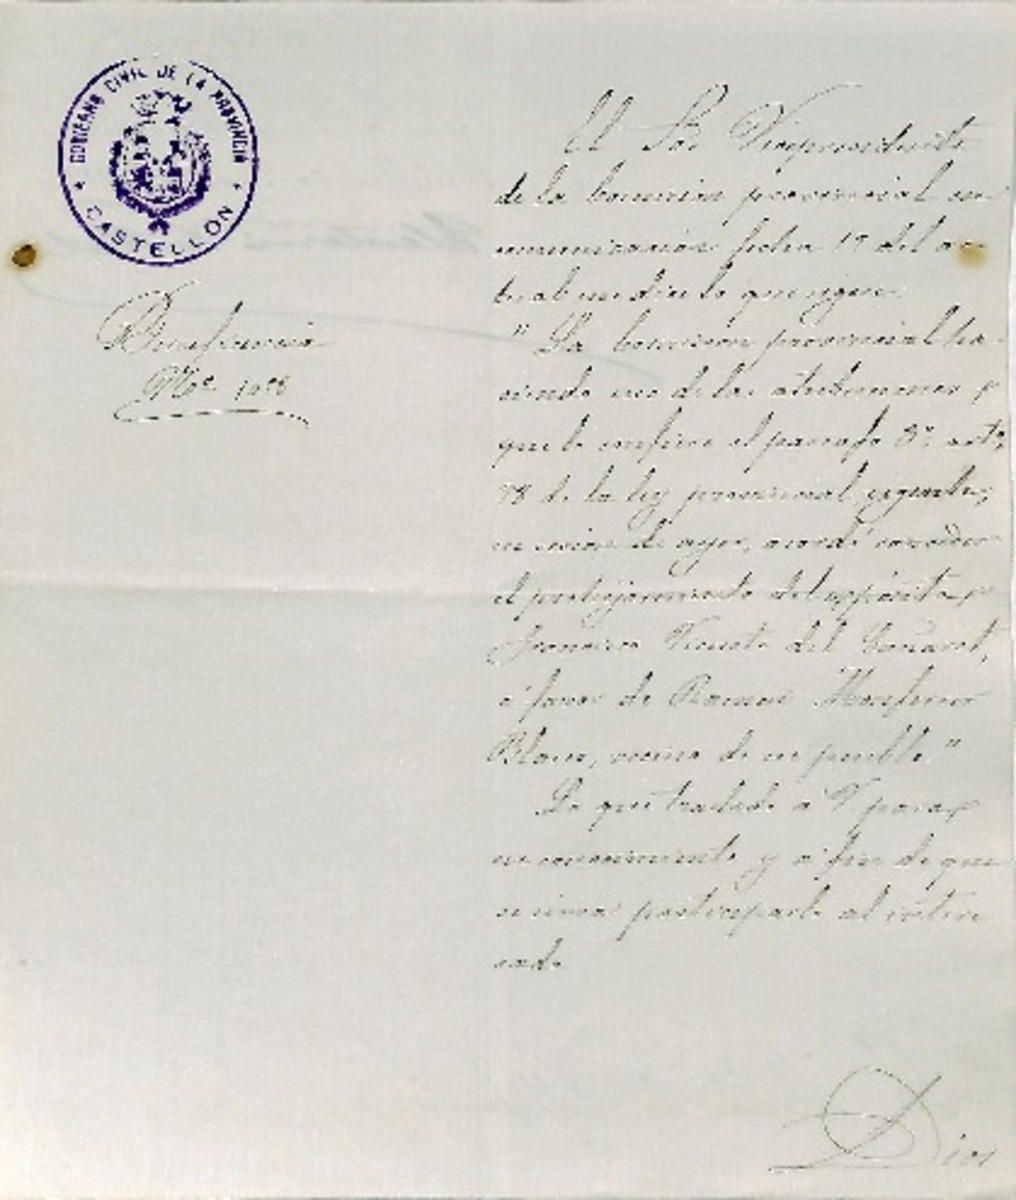 GOBIERNO CIVIL DE LA PROVINCIA
CASTELLON
Beneficencia
El Sor Vicepresidente
de la Comision provincial en
comunicacion fecha 17 del ac-
tual me dice lo que sigue:
"La Comision provincial ha-
ciendo uso de las atribuciones
que le confiere el parrafo 3º artº
98 de la ley provincial vigente,
en sesion de ayer, acordó conceder
el prohijamiento del expósito
Francisco Vicente del
á favor de Ramon Monferrer
Blasco, vecino de ese pueblo."
Lo que traslado á V. para
su conocimiento y á fin de que
se sirva participarlo al intere
sado.
Dios